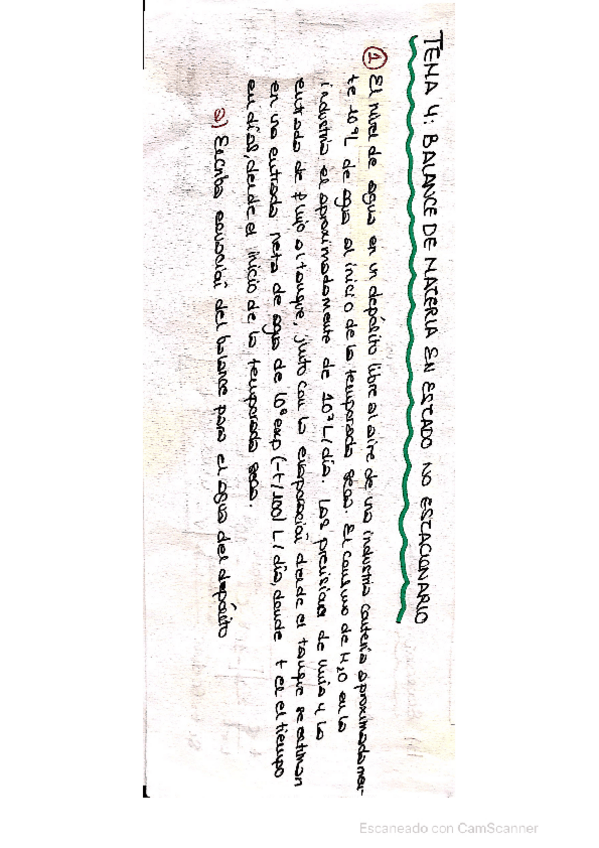 TEMA 4: BALANCE DE MATERIA EN ESTADO NO ESTACIONARIO
① El nivel de agua en un depósito libre al aire de una industria contenía aproximadamen-
te 10⁹L de agua al inicio de la temporada seca. El consumo de H₂O en la
industria el aproximadamente de 10⁷L/día. Las previsiones de lluvia y la
entrada de flujo al tanque, junto con la evaporación desde el tanque se estiman
en una entrada neta de agua de 10⁶exp(-t/100) L/día, donde t es el tiempo
en días, desde el inicio de la temporada seca.
a) Escriba ecuación del balance para el agua del depósito
Escaneado con CamScanner